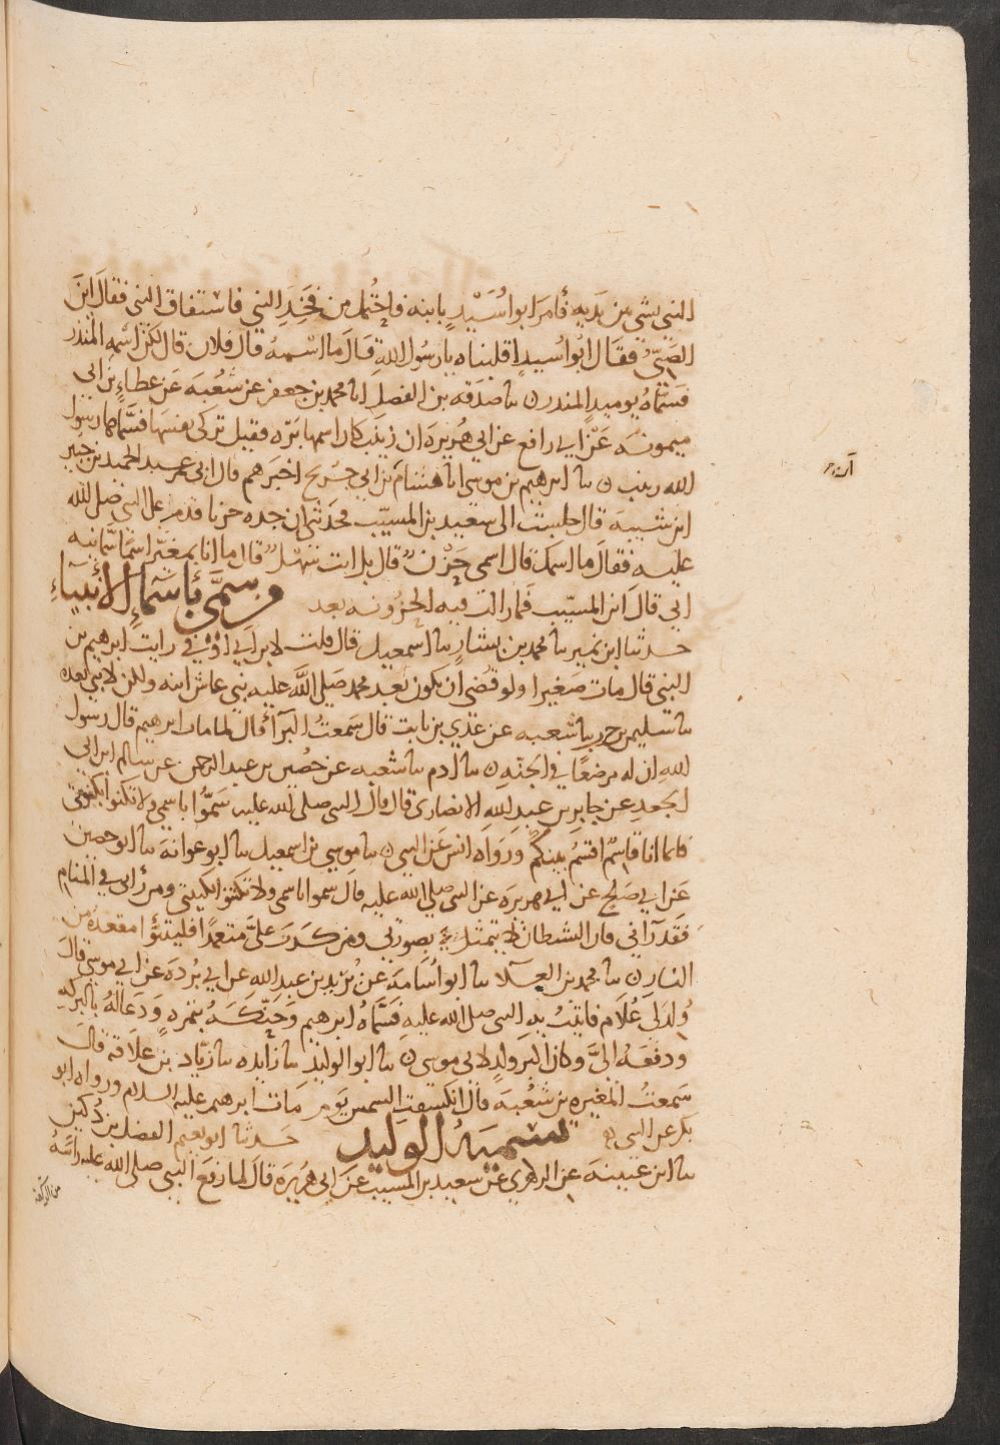 النبي بشي من يديه فأمر ابو اُسَيْدٍ بابنه فاحتُمل من فَخِذِ النبي فاستفاق النبي فقال اين
الصَبيُّ فقال ابو اُسيد اقلبناه يا رسُول الله قال ما اسمهُ قال فلان قال لكن اسْمه المنذر
فسَمَّاهُ يوميدٍ المنذر ن سا صدَقة بن الفضل انا محمد بن جعفر عن شعُبة عَن عطاءِ بن ابي
ميمونة عَن ابي رافع عن ابي هُريرة ان زينب كان اسمها بَرّه فقيل تزكى نفسَها فسَّماها رسول
الله زينب ن سا ابرهيم بن موسى انا هشام ان ابن جُريج اخبَرهم قال انى عبد الحميد بن جبير
ابن شيبة قال جلست الى سعيد بن المسيّب فحدثني ان جده حزنا قدم على النبي صلى الله
عليه فقال ما اسمك قال اسمى حَزْن قال بل انت سَهْل قال ما انا بمغيّر اسمًا سَّمانيه
ابي قال ابن المسيّب فما زالت فيه الحزُونه بعد من سمَّى بأسْمَاءِ الأنبيَاءِ
حدثنا ابن نمير سا محمد بن بشار سا اسمعيل قال قلت لابن ابي اوْفى رايت ابرهيم بن
النبي قال مات صَغيرا ولو قضى ان يكون بَعد محمد صلى الله عليه نبي عاش ابنه ولكن لا نبي بعده
سا سليمن بن حرب سا شعبه عن عَدي بن ثابت قال سَمعتُ البَرآءَ قال لما مات ابرهيم قال رسول
الله ان له مرضعًا في الجنّه ن سا ادم سا شعبه عن حصُين بن عبد الرحمن عن سالم ابن ابي
الجعد عن جابر بن عبد الله الانصارى قال قال النبى صلى الله عليه سَمُّوا باسمي ولا تكتنوا بكنيتي
فانما انا قاسِمٌ اقسمُ بينكم ورَوَاه انس عَن النبي ن سا موسى بن اسمعيل سا ابو عوانة سا ابو حصين
عَن ابي صَالح عن ابي هريرة عن النبى صلي الله عليه قال سموا باسمى ولا تكتنوا بكنيتي ومن رأني في المنام
فقَد رآني فان الشيطان لا يتمثل بصورتي ومن كَذبَ علىَّ متعمدًا فليتبوَّأ مقعدَهُ من
النار ن سا محمد بن العلا سا ابو اُسَامة عَنْ بُريد بن عبد الله عن ابي بُردَة عن ابي موسى قالَ
وُلدَ لي غُلام فاتيتُ به النبى صلى الله عليه فسَّماهُ ابرهيم وَحَنّكَهُ بتمرهٍ وَدَعَا لَهُ بالبركةِ
ودفعَهُ الىَّ وكان اكبَر ولدِ ابي موسى ن سا ابو الوليد سا زآيده سا زيّاد بن علَاقة قالَ
سَمعتُ المُغيره بن شعُبة قال انكسفت الشمس يَوم مَات ابرهيم عليه السلام ورواه ابو
بكرعن النبى تسميةُ الوليد حَدثنا ابو نعيم الفضل بن دُكين
سا ابن عيينة عن الزهري عَن سعيد بن المسيب عن ابي هُريرَة قال لما رفعَ النبى صلى الله عليه راسَهُ
من الركعة